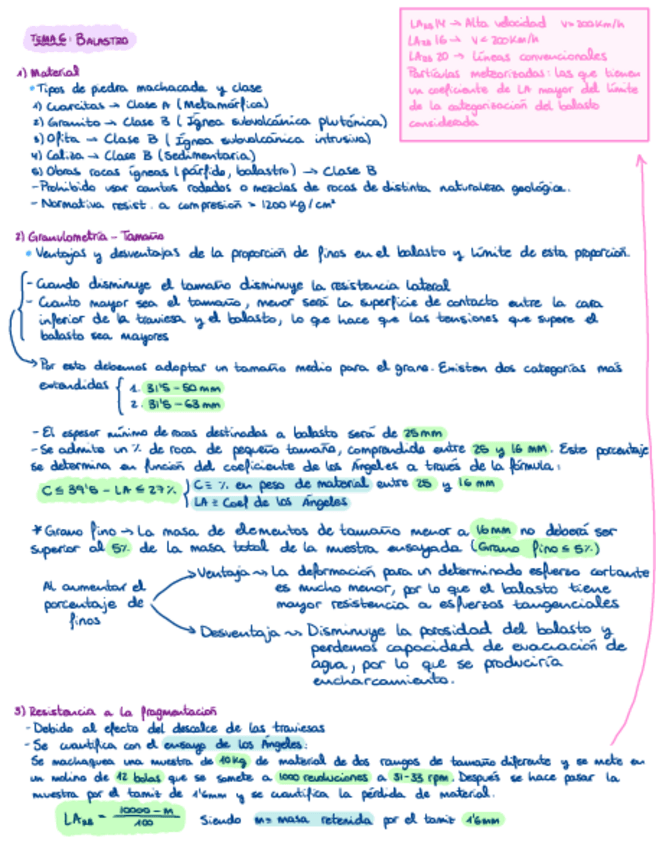 TEMA 6: BALASTRO
LARB 14 → Alta velocidad V > 200 Km/h
LARB 16 → V < 200 Km/h
LARB 20 → Líneas convencionales
Partículas meteorizadas: las que tienen
un coeficiente de LA mayor del límite
de la categorización del balasto
considerada
1) Material
• Tipos de piedra machacada y clase
1) Cuarcitas → Clase A (Metamórfica)
2) Granito → Clase B (Ígnea subvolcánica plutónica)
3) Ofita → Clase B (Ígnea subvolcánica intrusiva)
4) Caliza → Clase B (Sedimentaria)
5) Obras rocas ígneas (pórfido, balastro) → Clase B
- Prohibido usar cantos rodados o mezclas de rocas de distinta naturaleza geológica.
- Normativa resist. a compresión > 1200 Kg/cm²
2) Granulometría - Tamaño
• Ventajas y desventajas de la proporción de finos en el balasto y límite de esta proporción.
- Cuando disminuye el tamaño disminuye la resistencia lateral
- Cuanto mayor sea el tamaño, menor será la superficie de contacto entre la cara
inferior de la traviesa y el balasto, lo que hace que las tensiones que supere el
balasto sea mayores
→ Por esto debemos adoptar un tamaño medio para el grano. Existen dos categorías más
extendidas
1. 31'5 - 50 mm
2. 31'5 - 63 mm
- El espesor mínimo de rocas destinadas a balasto será de 25 mm
- Se admite un % de roca de pequeño tamaño, comprendida entre 25 y 16 mm. Este porcentaje
se determina en función del coeficiente de los Ángeles a través de la fórmula:
C ≤ 39'5 - LA ≤ 27% C ≡ % en peso de material entre 25 y 16 mm
LA ≡ Coef de los Ángeles
* Grano fino → La masa de elementos de tamaño menor a 16 mm no deberá ser
superior al 5% de la masa total de la muestra ensayada (Grano fino ≤ 5%)
Al aumentar el
porcentaje de
finos
Ventaja ~> La deformación para un determinado esfuerzo cortante
es mucho menor, por lo que el balasto tiene
mayor resistencia a esfuerzos tangenciales
Desventaja ~> Disminuye la porosidad del balasto y
perdemos capacidad de evacuación de
agua, por lo que se produciría
encharcamiento.
3) Resistencia a la fragmentación
- Debido al efecto del descalce de las traviesas
- Se cuantifica con el ensayo de los Ángeles:
Se machaquea una muestra de 10 Kg de material de dos rangos de tamaño diferente y se mete en
un molino de 12 bolas que se somete a 1000 revoluciones a 31-33 rpm. Después se hace pasar la
muestra por el tamiz de 1'6mm y se cuantifica la pérdida de material.
LARB = 10000 - M / 100 Siendo m = masa retenida por el tamiz 1'6mm